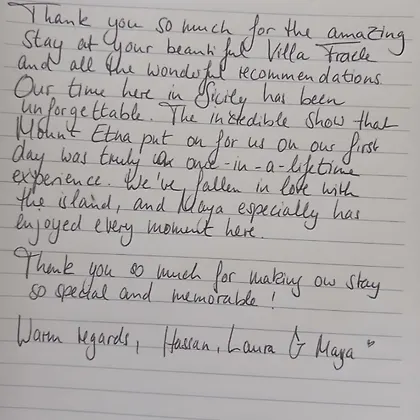 Thank you so much for the amazing
stay at your beautiful Villa
and all the wonderful recommendations.
Our time here in Sicily has been
unforgettable. The incredible show that
Mount Etna put on for us on our first
day was truly once-in-a-lifetime
experience. We've fallen in love with
the island, and Maya especially has
enjoyed every moment here.
Thank you so much for making our stay
so special and memorable!
Warm regards, Hassan, Laura & Maya